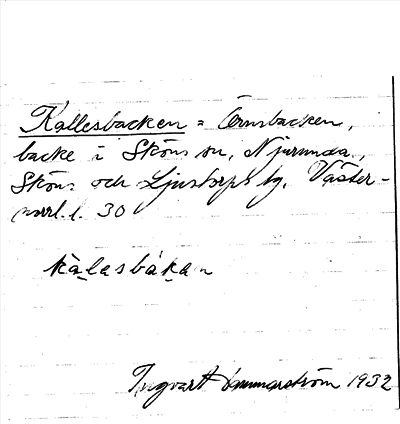 Kallesbacken = Örnsbacken,
backe i Sköns sn, Njurunda,
Sköns och Ljustorps tg. Väster-
norrl. l. 30
kàlasbákan
Ingvart Hammarström 1932